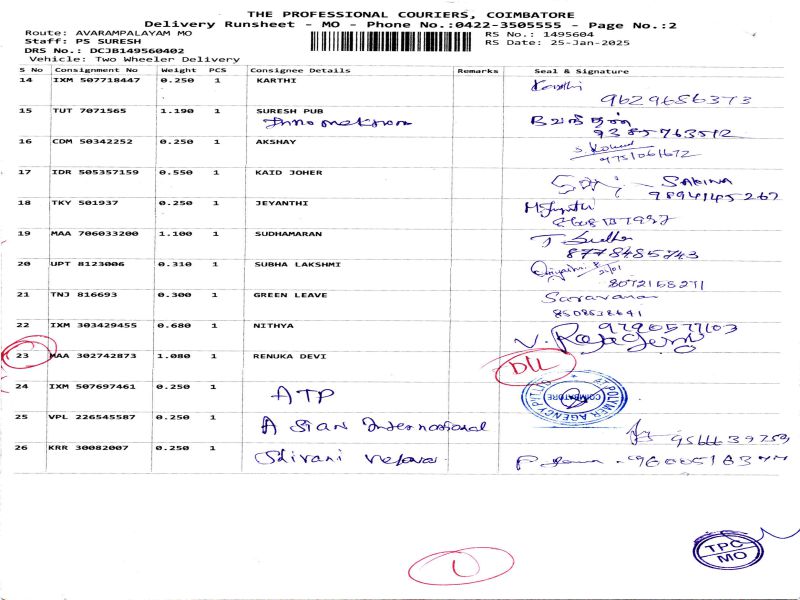 THE PROFESSIONAL COURIERS, COIMBATORE
Delivery Runsheet - MO - Phone No.:0422-3505555 - Page No.:2
Route: AVARAMPALAYAM MO
Staff: PS SURESH
DRS No.: DCJB149560402
Vehicle: Two Wheeler Delivery
RS No.: 1495604
RS Date: 25-Jan-2025
S No Consignment No Weight PCS Consignee Details Remarks Seal & Signature
14 IXM 507718447 0.250 1 KARTHI
9629686373
15 TUT 7071565 1.190 1 SURESH PUB
9385763512
16 CDM 50342252 0.250 1 AKSHAY
9751061672
17 IDR 505357159 0.550 1 KAID JOHER SABINA
9894145267
18 TKY 501937 0.250 1 JEYANTHI
19 MAA 706033200 1.100 1 SUDHAMARAN
8778485743
20 UPT 8123006 0.310 1 SUBHA LAKSHMI
8072168271
21 TNJ 816693 0.300 1 GREEN LEAVE Saravanan
8508538641
22 IXM 303429455 0.680 1 NITHYA
23 MAA 302742873 1.080 1 RENUKA DEVI
24 IXM 507697461 0.250 1 ATP COIMBATORE
25 VPL 226545587 0.250 1 Asian International
26 KRR 30082007 0.250 1 Shivani
1
TPC
MO